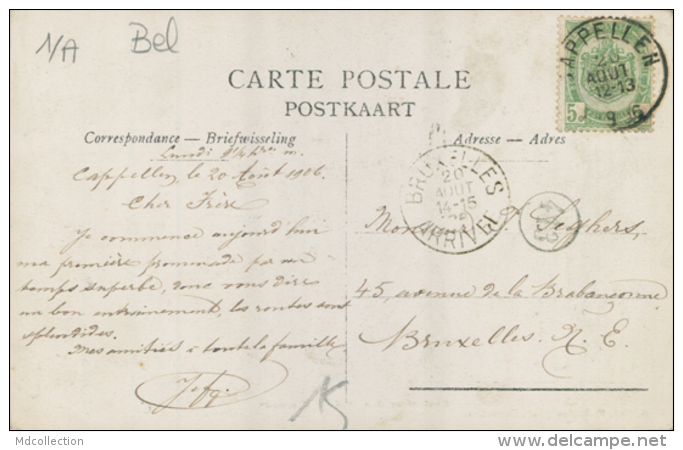 N/A Bel
CARTE POSTALE
POSTKAART
Correspondance — Briefwisseling
Adresse — Adres
CAPPELLEN
20
AOUT
12-13
5
BRUXELLES
20
AOUT
14-15
ARRIVÉE
Lundi
Cappellen, le 20 Août 1906.
Cher Frère
Je commence aujourd'hui
ma première promenade par un
temps superbe, donc vous dire
un bon entrainement, les routes sont
splendides.
Mes amitiés à toute la famille
Monsieur Seghers,
45, avenue de la Brabançonne
Bruxelles. N. E.
Mdcollection
www.delcampe.net